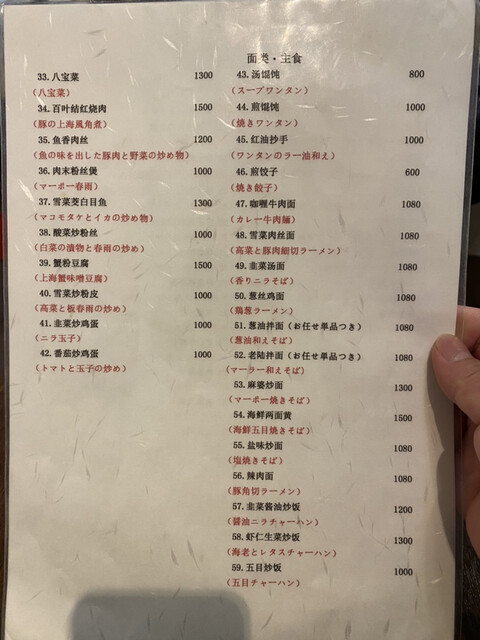 33. 八宝菜 1300
（八宝菜）
34. 百叶结红烧肉 1500
（豚の上海風角煮）
35. 鱼香肉丝 1200
（魚の味を出した豚肉と野菜の炒め物）
36. 肉末粉丝煲 1000
（マーボー春雨）
37. 雪菜茭白目鱼 1300
（マコモタケとイカの炒め物）
38. 酸菜炒粉丝 1000
（白菜の漬物と春雨の炒め）
39. 蟹粉豆腐 1500
（上海蟹味噌豆腐）
40. 雪菜炒粉皮 1000
（高菜と板春雨の炒め）
41. 韭菜炒鸡蛋 1000
（ニラ玉子）
42. 番茄炒鸡蛋 1000
（トマトと玉子の炒め）
面类・主食
43. 汤馄饨 800
（スープワンタン）
44. 煎馄饨 1000
（焼きワンタン）
45. 红油抄手 1000
（ワンタンのラー油和え）
46. 煎饺子 600
（焼き餃子）
47. 咖喱牛肉面 1080
（カレー牛肉麺）
48. 雪菜肉丝面 1080
（高菜と豚肉細切りラーメン）
49. 韭菜汤面 1080
（香りニラそば）
50. 葱丝鸡面 1080
（鶏葱ラーメン）
51. 葱油拌面（お任せ単品つき） 1080
（葱油和えそば）
52. 老陆拌面（お任せ単品つき） 1080
（マーラー和えそば）
53. 麻婆炒面 1300
（マーボー焼きそば）
54. 海鲜两面黄 1500
（海鮮五目焼きそば）
55. 盐味炒面 1080
（塩焼きそば）
56. 辣肉面 1080
（豚角切ラーメン）
57. 韭菜酱油炒饭 1200
（醤油ニラチャーハン）
58. 虾仁生菜炒饭 1300
（海老とレタスチャーハン）
59. 五目炒饭 1000
（五目チャーハン）